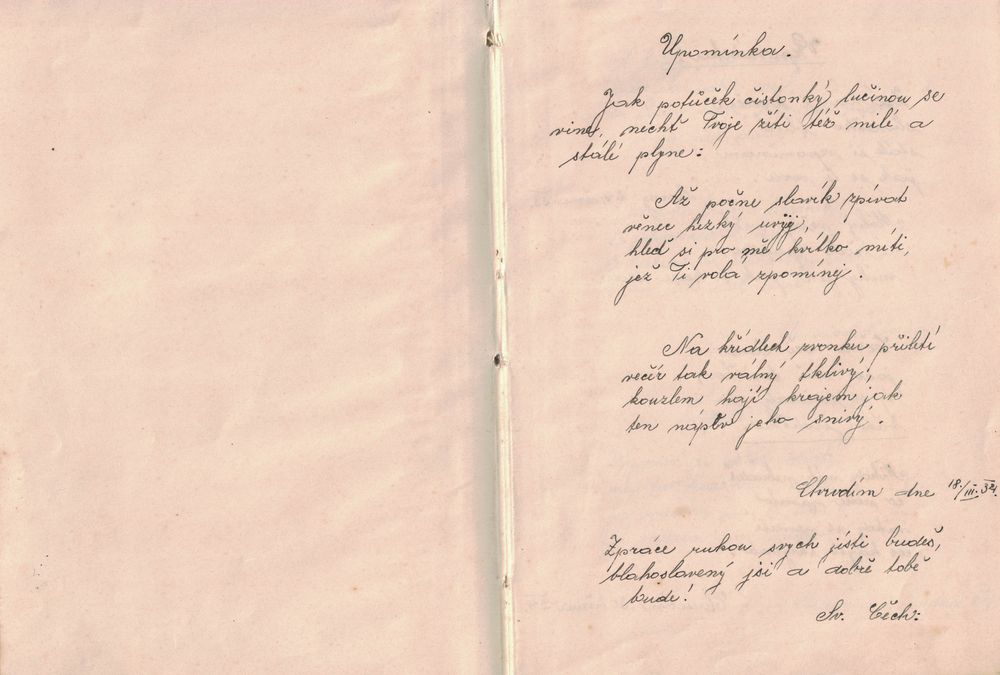 Upomínka.
Jak potůček čistonký lučinou se
vine, nechť Tvoje žití též milé a
stálé plyne:
Až počne slavík zpívat
věnec hezký uvij,
hleď si pro mě kvítko míti,
jež Ti volá zpomínej.
Na křídlech zvonku přiletí
večír tak válný tklivý,
kouzlem hájí krajem jak
ten nápěv jeho snivý.
Chrudim dne 18./III. 34.
Zpráce rukou svych jísti budeš,
blahoslavený jsi a dobře tobě
bude!
Sv. Čech: